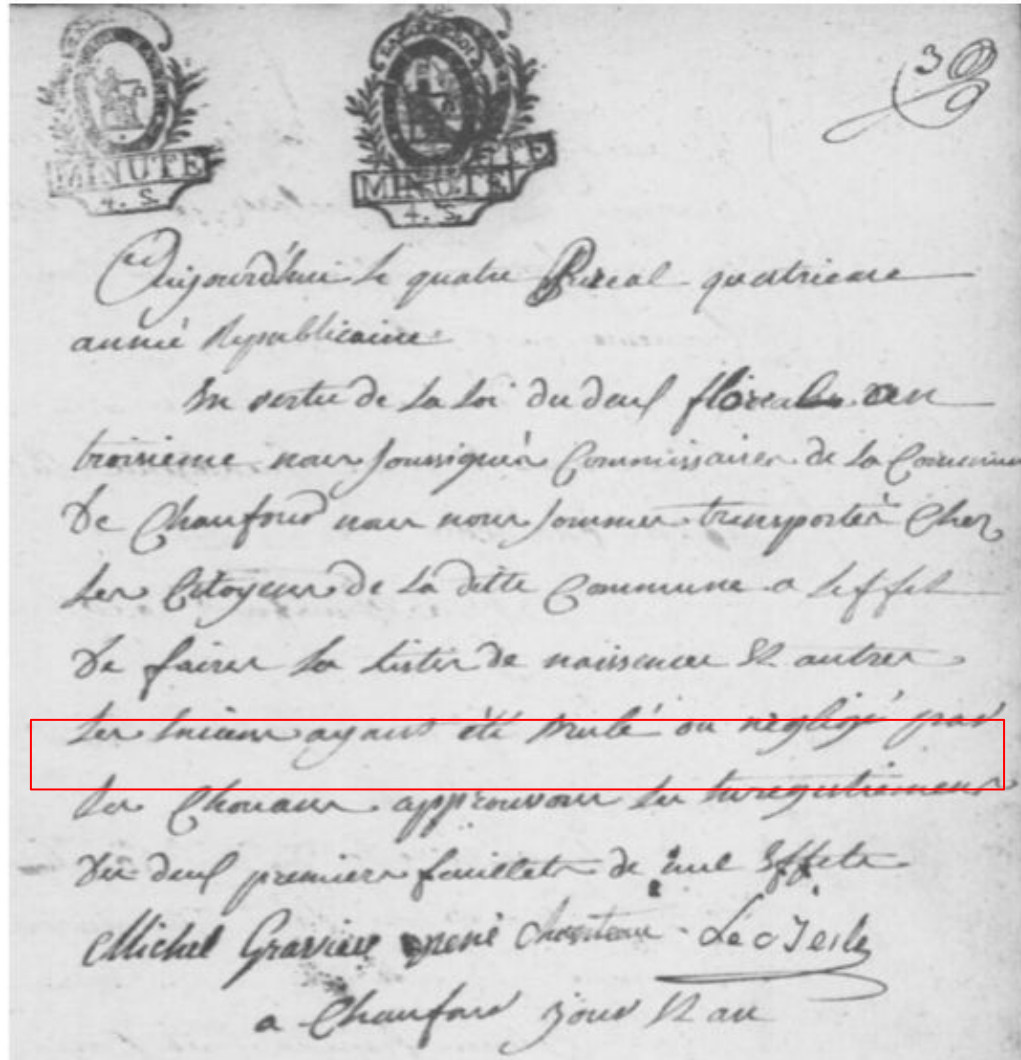 MINUTE
4. S.
MINUTE
4. S.
3
Aujourd'hui le quatre quatrieme
année Republicaine
En vertu de la loi du deux floreal an
troisieme nous soussignés Commissaires de la Commune
De Chaufour nous nous sommes transportés Chez
Les Citoyens de la ditte Commune a leffet
De faires la listes de naissences et autres
Les ayans été brulé ou négligé par
les Chouans approuvons les Enregistrements
Du deux premiers feuillets de nul Effets
Michel Gravier rené Le
a Chaufour jour et an